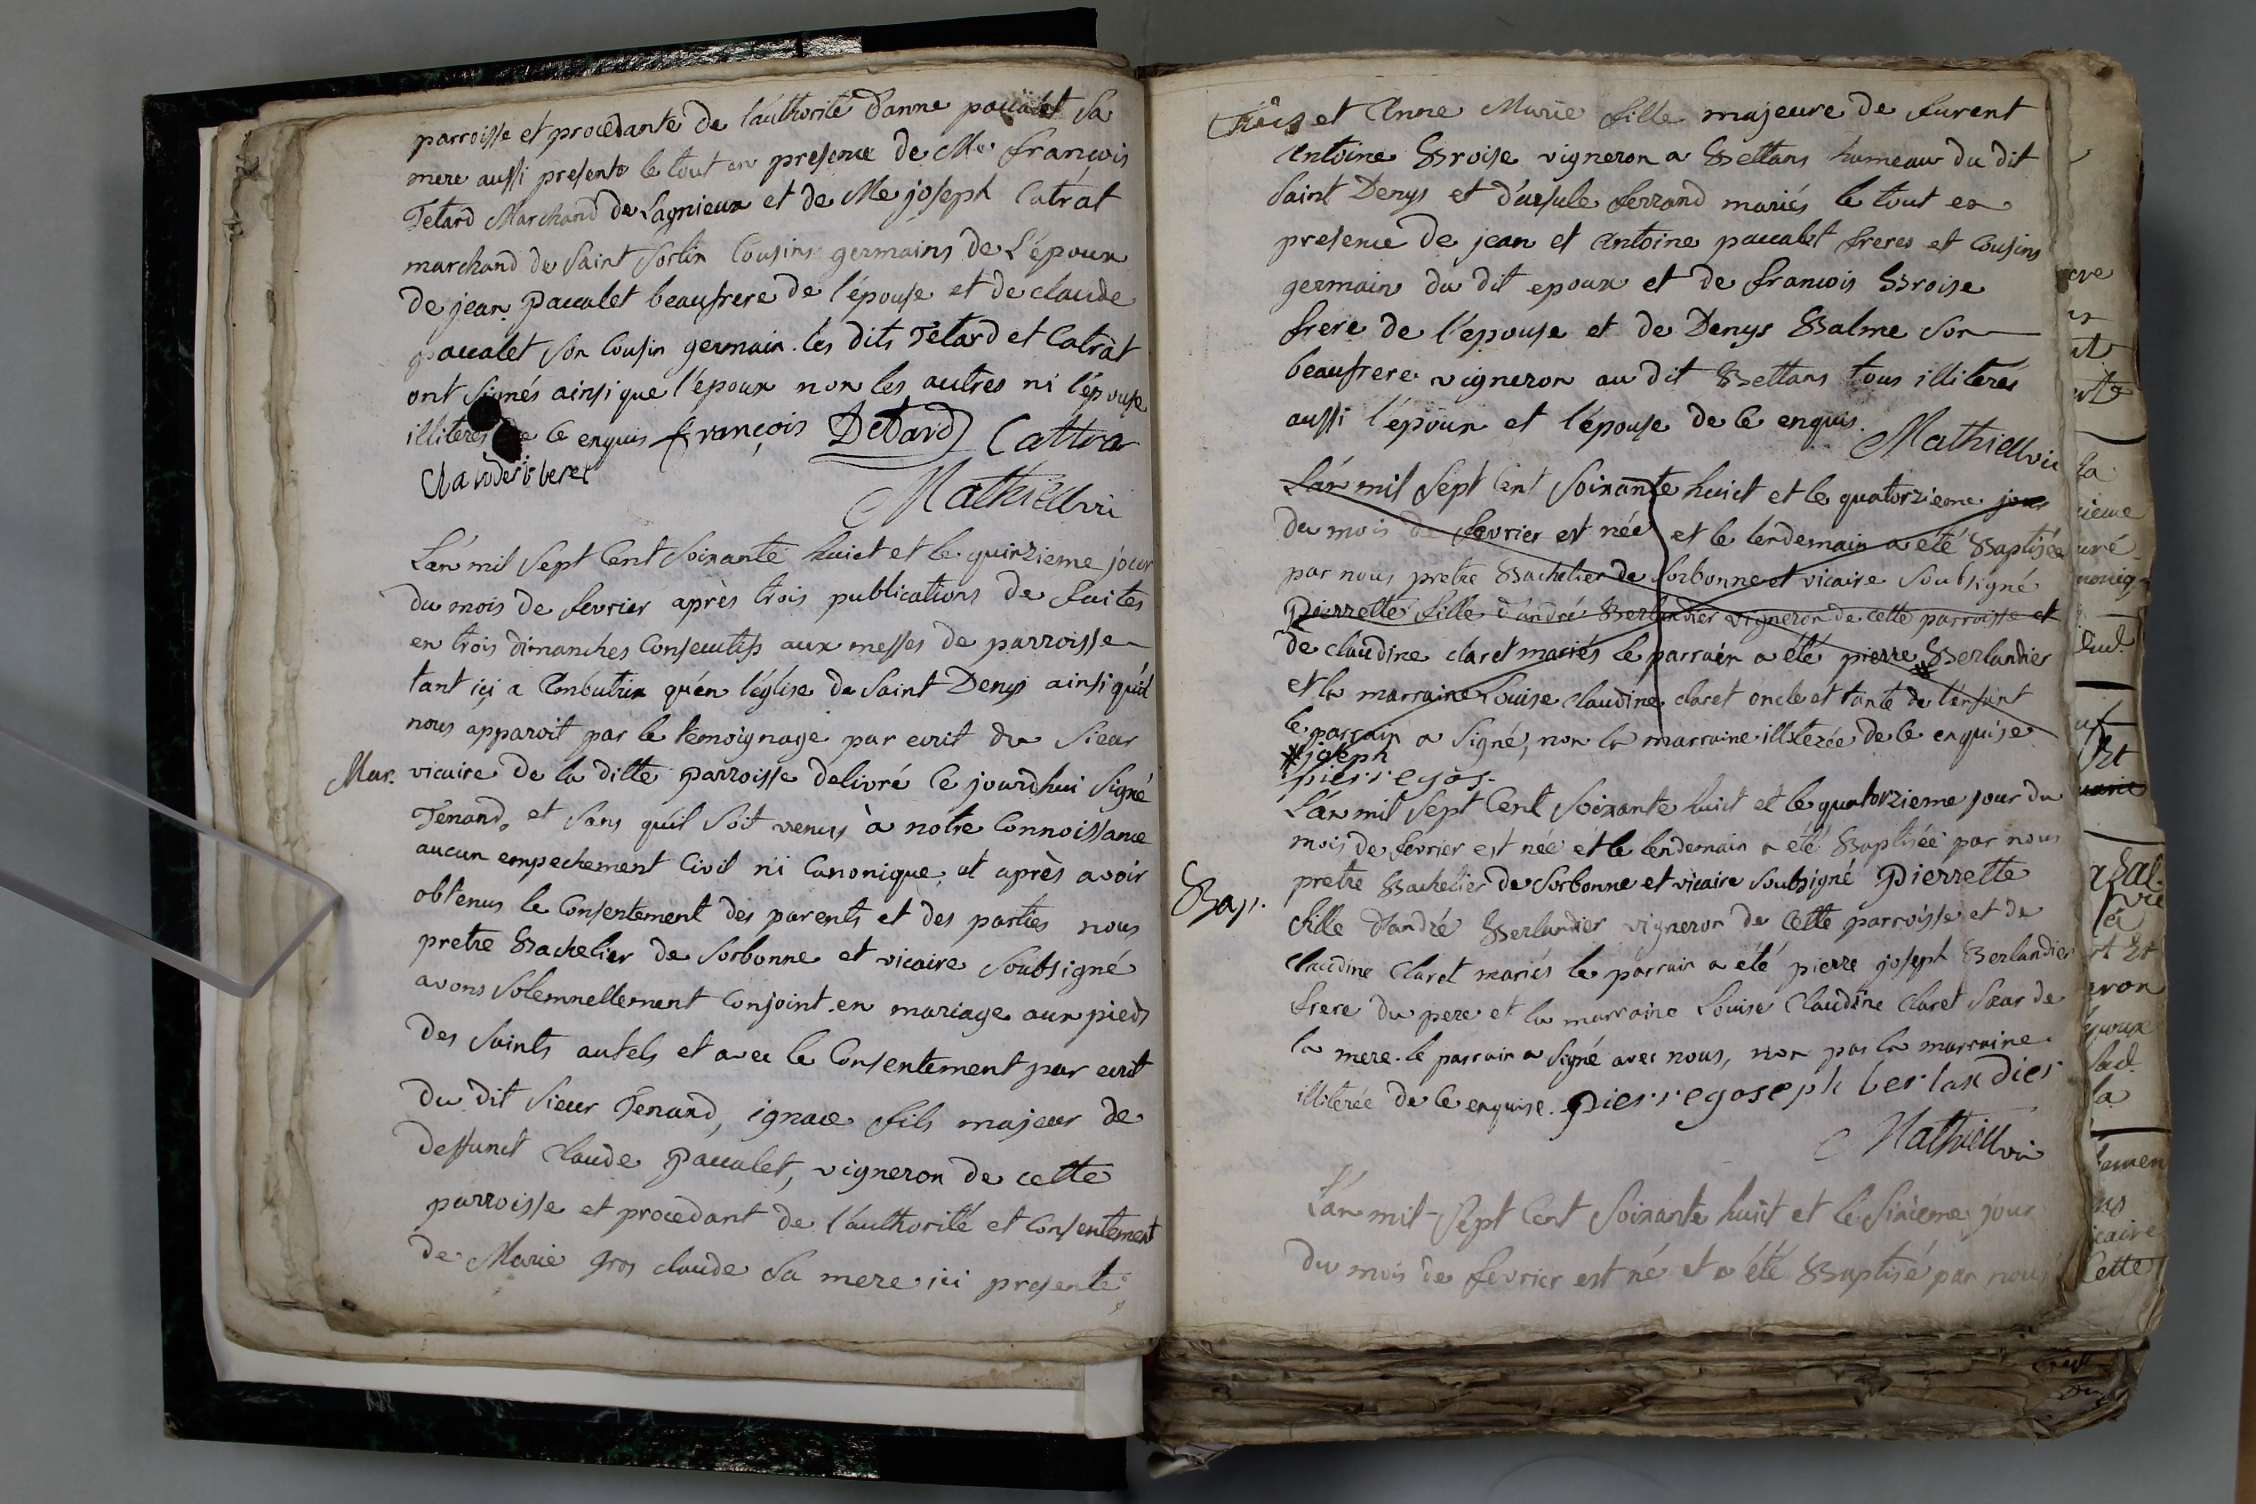 parroisse et procedante de l'authorité d'anne paccalet sa
mere aussi presente le tout en presence de Me françois
Tetard Marchand de Lagnieux et de Me joseph Catrat
marchand de saint sorlin cousins germains de l'époux
de jean Paccalet beaufrere de l'épouse et de claude
paccalet son cousin germain. les dits Tetard et Catràt
ont signés ainsi que l'époux non les autres ni l'épouse
illiterés de ce enquis françois Detard Cattra
Mathieu vic
L'an mil sept cent soixante huict et le quinzieme jour
du mois de fevrier après trois publications de faites
en trois dimanches consecutifs aux messes de parroisse
tant içi a Ambutrix qu'en l'église de saint Denys ainsi qu'il
nous apparoit par le temoignage par ecrit du sieur
Mar. vicaire de la ditte parroisse delivré ce jourdhui signé
Tenand, et sans qu'il soit venus à notre connoissance
aucun empechement civil ni canonique, et après avoir
obtenus le consentement des parents et des parties nous
pretre Bachelier de sorbonne et vicaire soubsigné
avons solemnellement conjoint en mariage aux pieds
des saints autels et avec le consentement par ecrit
du dit sieur Tenand, ignace fils majeur de
deffunct claude Paccalet, vigneron de cette
parroisse et procedant de l'authorité et consentement
de Marie gros claude sa mere ici presente
et Anne Marie fille majeure de furent
Antoine Broise vigneron a Bettans hameau du dit
saint Denys et d'ursule ferrand mariés le tout en
presence de jean et Antoine paccalet freres et cousins
germain du dit epoux et de francois Broise
frere de l'épouse et de Denys Balme son
beaufrere vigneron au dit Bettans tous illiterés
aussi l'époux et l'épouse de ce enquis.
Mathieu vic
L'an mil sept cent soixante huict et le quatorzieme jour
du mois de fevrier est née et le lendemain a été Baptisée
par nous pretre Bachelier de sorbonne et vicaire soubsigné
Pierrette fille d'andré Berlandier vigneron de cette parroisse et
de claudine claret mariés le parrain a été pierre * Berlandier
et la marraine Louise claudine claret oncle et tante de l'enfant
le parrain a signé, non la marraine illiterée de ce enquise
* joseph
pierregos
L'an mil sept cent soixante huict et le quatorzieme jour du
mois de fevrier est née et le lendemain a été Baptisée par nous
Bap. pretre Bachelier de sorbonne et vicaire soubsigné Pierrette
fille d'andré Berlandier vigneron de cette parroisse et de
claudine claret mariés le parrain a été pierre joseph Berlandier
frere du pere et la marraine Louise Claudine Claret sœur de
la mere. le parrain a signé avec nous, non pas la marraine
illiterée de ce enquise. pierregoseph berlandier
Mathieu vic
L'an mil sept cent soixante huict et le sixieme jour
du mois de fevrier est né et a été Baptisé par nous